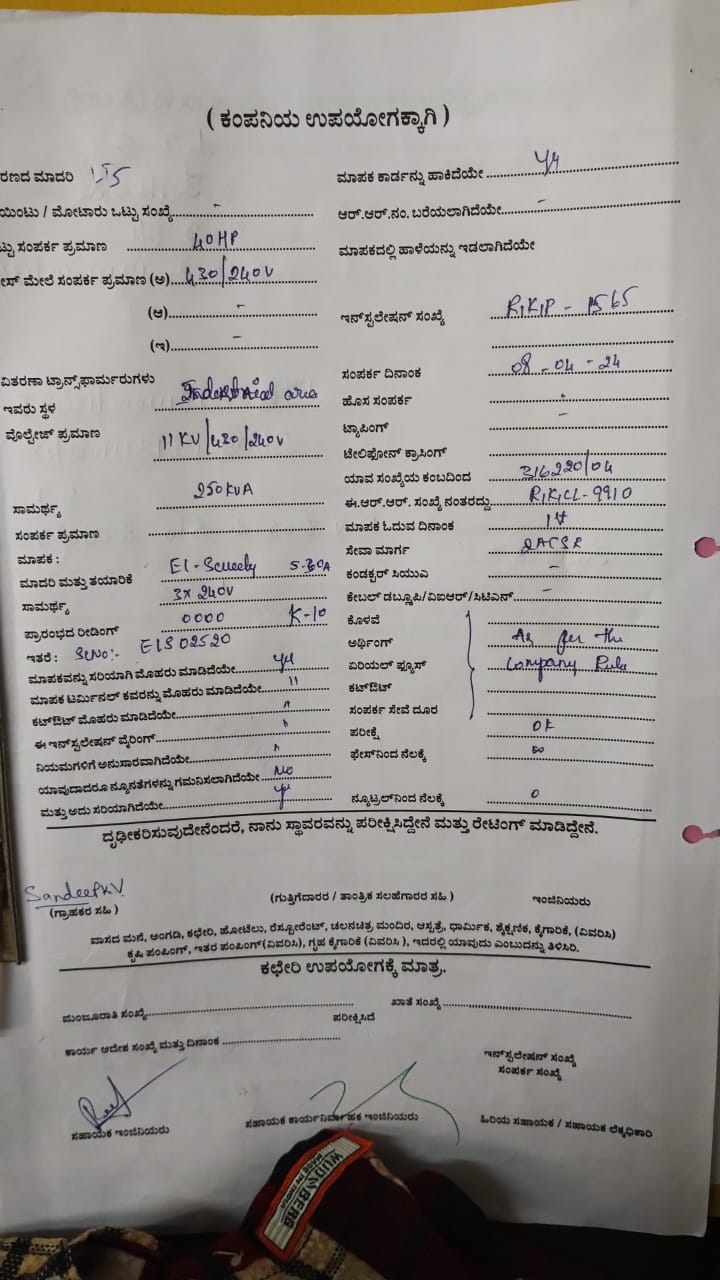 ( ಕಂಪನಿಯ ಉಪಯೋಗಕ್ಕಾಗಿ )
ರಣದ ಮಾದರಿ LT5
ಯಿಂಟು / ಮೋಟಾರು ಒಟ್ಟು ಸಂಖ್ಯೆ -
ಟ್ಟು ಸಂಪರ್ಕ ಪ್ರಮಾಣ 40HP
ೀಸ್ ಮೇಲೆ ಸಂಪರ್ಕ ಪ್ರಮಾಣ (ಅ) 430/240V
(ಆ) -
(ಇ) -
ವಿತರಣಾ ಟ್ರಾನ್ಸ್‌ಫಾರ್ಮರುಗಳು
ಇವರು ಸ್ಥಳ Industrial area
ವೊಲ್ಟೇಜ್ ಪ್ರಮಾಣ 11KV/430/240V
ಸಾಮರ್ಥ್ಯ 250KVA
ಸಂಪರ್ಕ ಪ್ರಮಾಣ
ಮಾಪಕ :
ಮಾದರಿ ಮತ್ತು ತಯಾರಿಕೆ El- 5-30A
ಸಾಮರ್ಥ್ಯ 3x240V
ಪ್ರಾರಂಭದ ರೀಡಿಂಗ್ 0000 K-10
ಇತರೆ : SlNo:- EIS02520
ಮಾಪಕವನ್ನು ಸರಿಯಾಗಿ ಮೊಹರು ಮಾಡಿದೆಯೇ yes
ಮಾಪಕ ಟರ್ಮಿನಲ್ ಕವರನ್ನು ಮೊಹರು ಮಾಡಿದೆಯೇ "
ಕಟ್‌ಔಟ್ ಮೊಹರು ಮಾಡಿದೆಯೇ "
ಈ ಇನ್‌ಸ್ಟಲೇಷನ್ ವೈರಿಂಗ್ "
ನಿಯಮಗಳಿಗೆ ಅನುಸಾರವಾಗಿದೆಯೇ "
ಯಾವುದಾದರೂ ನ್ಯೂನತೆಗಳನ್ನು ಗಮನಿಸಲಾಗಿದೆಯೇ No
ಮತ್ತು ಅದು ಸರಿಯಾಗಿದೆಯೇ yes
ಮಾಪಕ ಕಾರ್ಡನ್ನು ಹಾಕಿದೆಯೇ yes
ಆರ್.ಆರ್.ನಂ. ಬರೆಯಲಾಗಿದೆಯೇ -
ಮಾಪಕದಲ್ಲಿ ಹಾಳೆಯನ್ನು ಇಡಲಾಗಿದೆಯೇ
ಇನ್‌ಸ್ಟಲೇಷನ್ ಸಂಖ್ಯೆ RJKIP - 1565
ಸಂಪರ್ಕ ದಿನಾಂಕ 08-04-24
ಹೊಸ ಸಂಪರ್ಕ
ಟ್ಯಾಪಿಂಗ್ -
ಟೆಲಿಫೋನ್ ಕ್ರಾಸಿಂಗ್
ಯಾವ ಸಂಖ್ಯೆಯ ಕಂಬದಿಂದ 316220/04
ಈ.ಆರ್.ಆರ್. ಸಂಖ್ಯೆ ನಂತರದ್ದು RJKICL-9910
ಮಾಪಕ ಓದುವ ದಿನಾಂಕ 1st
ಸೇವಾ ಮಾರ್ಗ 2ACSR
ಕಂಡಕ್ಟರ್ ಸಿಯುಎ -
ಕೇಬಲ್ ಡಬ್ಲ್ಯೂಪಿ/ವಿಐಆರ್/ಸಿಟಿಎನ್ -
ಕೊಳವೆ
ಅರ್ಥಿಂಗ್ As per the
ಏರಿಯಲ್ ಫ್ಯೂಸ್ Company Rule
ಕಟ್‌ಔಟ್
ಸಂಪರ್ಕ ಸೇವೆ ದೂರ
ಪರೀಕ್ಷೆ OK
ಫೇಸ್‌ನಿಂದ ನೆಲಕ್ಕೆ ∞
ನ್ಯೂಟ್ರಲ್‌ನಿಂದ ನೆಲಕ್ಕೆ 0
ದೃಢೀಕರಿಸುವುದೇನೆಂದರೆ, ನಾನು ಸ್ಥಾವರವನ್ನು ಪರೀಕ್ಷಿಸಿದ್ದೇನೆ ಮತ್ತು ರೇಟಿಂಗ್ ಮಾಡಿದ್ದೇನೆ.
Sandeep K V
(ಗ್ರಾಹಕರ ಸಹಿ ) (ಗುತ್ತಿಗೆದಾರರ / ತಾಂತ್ರಿಕ ಸಲಹೆಗಾರರ ಸಹಿ ) ಇಂಜಿನಿಯರು
ವಾಸದ ಮನೆ, ಅಂಗಡಿ, ಕಛೇರಿ, ಹೋಟೆಲು, ರೆಸ್ಟೋರೆಂಟ್, ಚಲನಚಿತ್ರ ಮಂದಿರ, ಆಸ್ಪತ್ರೆ, ಧಾರ್ಮಿಕ, ಶೈಕ್ಷಣಿಕ, ಕೈಗಾರಿಕೆ, (ವಿವರಿಸಿ)
ಕೃಷಿ ಪಂಪಿಂಗ್, ಇತರ ಪಂಪಿಂಗ್(ವಿವರಿಸಿ), ಗೃಹ ಕೈಗಾರಿಕೆ (ವಿವರಿಸಿ ), ಇದರಲ್ಲಿ ಯಾವುದು ಎಂಬುದನ್ನು ತಿಳಿಸಿರಿ.
ಕಛೇರಿ ಉಪಯೋಗಕ್ಕೆ ಮಾತ್ರ.
ಮಂಜೂರಾತಿ ಸಂಖ್ಯೆ ಖಾತೆ ಸಂಖ್ಯೆ
ಪರೀಕ್ಷಿಸಿದೆ
ಕಾರ್ಯ ಆದೇಶ ಸಂಖ್ಯೆ ಮತ್ತು ದಿನಾಂಕ
ಇನ್‌ಸ್ಟಲೇಷನ್ ಸಂಖ್ಯೆ
ಸಂಪರ್ಕ ಸಂಖ್ಯೆ
ಸಹಾಯಕ ಇಂಜಿನಿಯರು ಸಹಾಯಕ ಕಾರ್ಯನಿರ್ವಾಹಕ ಇಂಜಿನಿಯರು ಹಿರಿಯ ಸಹಾಯಕ / ಸಹಾಯಕ ಲೆಕ್ಕಾಧಿಕಾರಿ
WUDNBERG
MADE IN INDIA